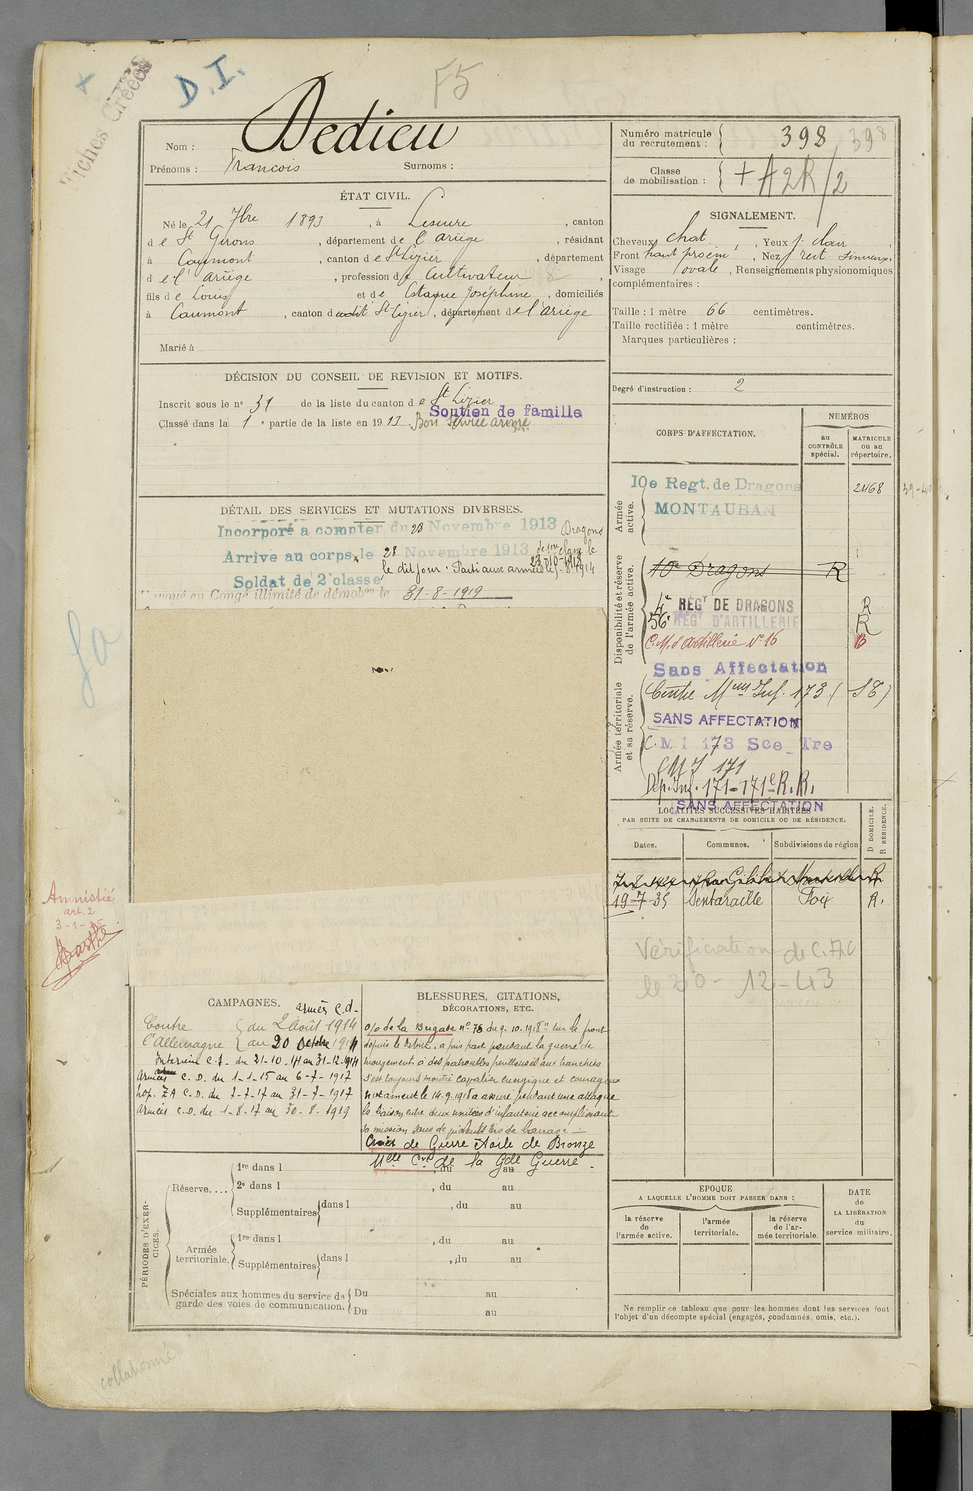 Fiches Créées
D.I.
F5
Nom : Dedieu
Prénoms : Francois Surnoms :
Numéro matricule du recrutement : 398 398
Classe de mobilisation : + A2R/2
ÉTAT CIVIL.
Né le 21 7bre 1893, à Lescure, canton
de St Girons, département de l'Ariège, résidant
à Caumont, canton de St Lizier, département
de l'Ariège, profession de Cultivateur
fils de Louis et de Estaque Joséphine, domiciliés
à Caumont, canton dudit St Lizier, département de l'Ariège
Marié à
SIGNALEMENT.
Cheveux chat, Yeux j. clair,
Front haut proém, Nez rect. sinueux,
Visage ovale, Renseignements physionomiques
complémentaires :
Taille : 1 mètre 66 centimètres.
Taille rectifiée : 1 mètre centimètres.
Marques particulières :
Degré d'instruction : 2
DÉCISION DU CONSEIL DE REVISION ET MOTIFS.
Inscrit sous le n° 31 de la liste du canton de St Lizier
Soutien de famille
Classé dans la 1e partie de la liste en 1913 Bon service armé
DÉTAIL DES SERVICES ET MUTATIONS DIVERSES.
Incorporé à compter du 28 Novembre 1913 Dragons
Arrive au corps, le 28 Novembre 1913
le dit jour. Parti aux armées -8-1914
Soldat de 2e classe
Envoyé en Congé illimité de démobon le 31-8-1919
CORPS D'AFFECTATION.
NUMÉROS
au CONTRÔLE spécial.
MATRICULE ou au répertoire.
Armée active.
10e Regt. de Dragons 2468
MONTAUBAN
Disponibilité et réserve de l'armée active.
10e Dragons R
4e RÉGt DE DRAGONS R
56e RÉGt D'ARTILLERIE R
C.M. d'Artillerie N° 16 B
Sans Affectation
Armée territoriale et sa réserve.
Centre Mm Inf. 173 (ST)
SANS AFFECTATION
C. M I 173 Sce Tre
C M I 171
Dép. Inf. 171 - 171e R.R.
SANS AFFECTATION
LOCALITÉS SUCCESSIVES HABITÉES
PAR SUITE DE CHANGEMENTS DE DOMICILE OU DE RÉSIDENCE.
Dates. Communes. Subdivisions de région
D DOMICILE. R RÉSIDENCE.
19-7-35 Sentaraille Foix R.
Vérification de C.A.C
le 20 - 12 - 43
Amnistié
art. 2
3-1-25
Barthe
CAMPAGNES.
Armées C.D.
Contre du 2 Août 1914
l'Allemagne au 20 Octobre 1914
Intérieur C.S. du 21-10-14 au 31-12-1914
Armées C.D. du 1-1-15 au 6-7-1917
hop. ZA C.D. du 7-7-17 au 31-7-1917
Armées C.D. du 1-8-17 au 30-8-1919
BLESSURES, CITATIONS,
DÉCORATIONS, ETC.
O/o de la Brigade n° 75 du 9.10.1918 "sur le front
depuis le début, a pris part pendant la guerre de
mouvement à des patrouilles périlleuses et aux tranchées
s'est toujours montré cavalier énergique et courageux
notamment le 14-9-1918 a assuré pendant une attaque
la liaison entre deux unités d'infanterie accomplissant
sa mission sous de violents tirs de barrage —
Croix de Guerre Etoile de Bronze
Mlle Cve de la Gde Guerre.
PÉRIODES D'EXERCICES.
Réserve....
1re dans l , du au
2e dans l , du au
Supplémentaires dans l , du au
Armée territoriale.
1re dans l , du au
Supplémentaires dans l , du au
Spéciales aux hommes du service de garde des voies de communication.
Du au
Du au
EPOQUE
A LAQUELLE L'HOMME DOIT PASSER DANS :
la réserve de l'armée active.
l'armée territoriale.
la réserve de l'armée territoriale.
DATE de LA LIBÉRATION du service militaire.
Ne remplir ce tableau que pour les hommes dont les services font
l'objet d'un décompte spécial (engagés, condamnés, omis, etc.).
collationné